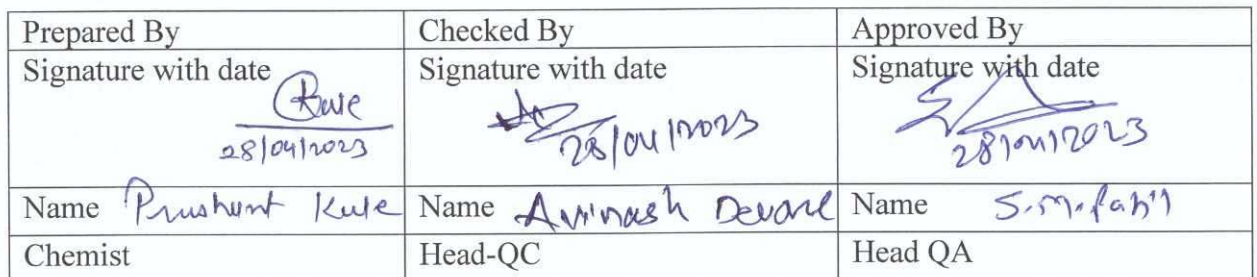 Prepared By Checked By Approved By
Signature with date Signature with date Signature with date
28/04/2023 28/04/2023 28/04/2023
Name Prushunt Kule Name Avinash Devare Name S.M.Patil
Chemist Head-QC Head QA